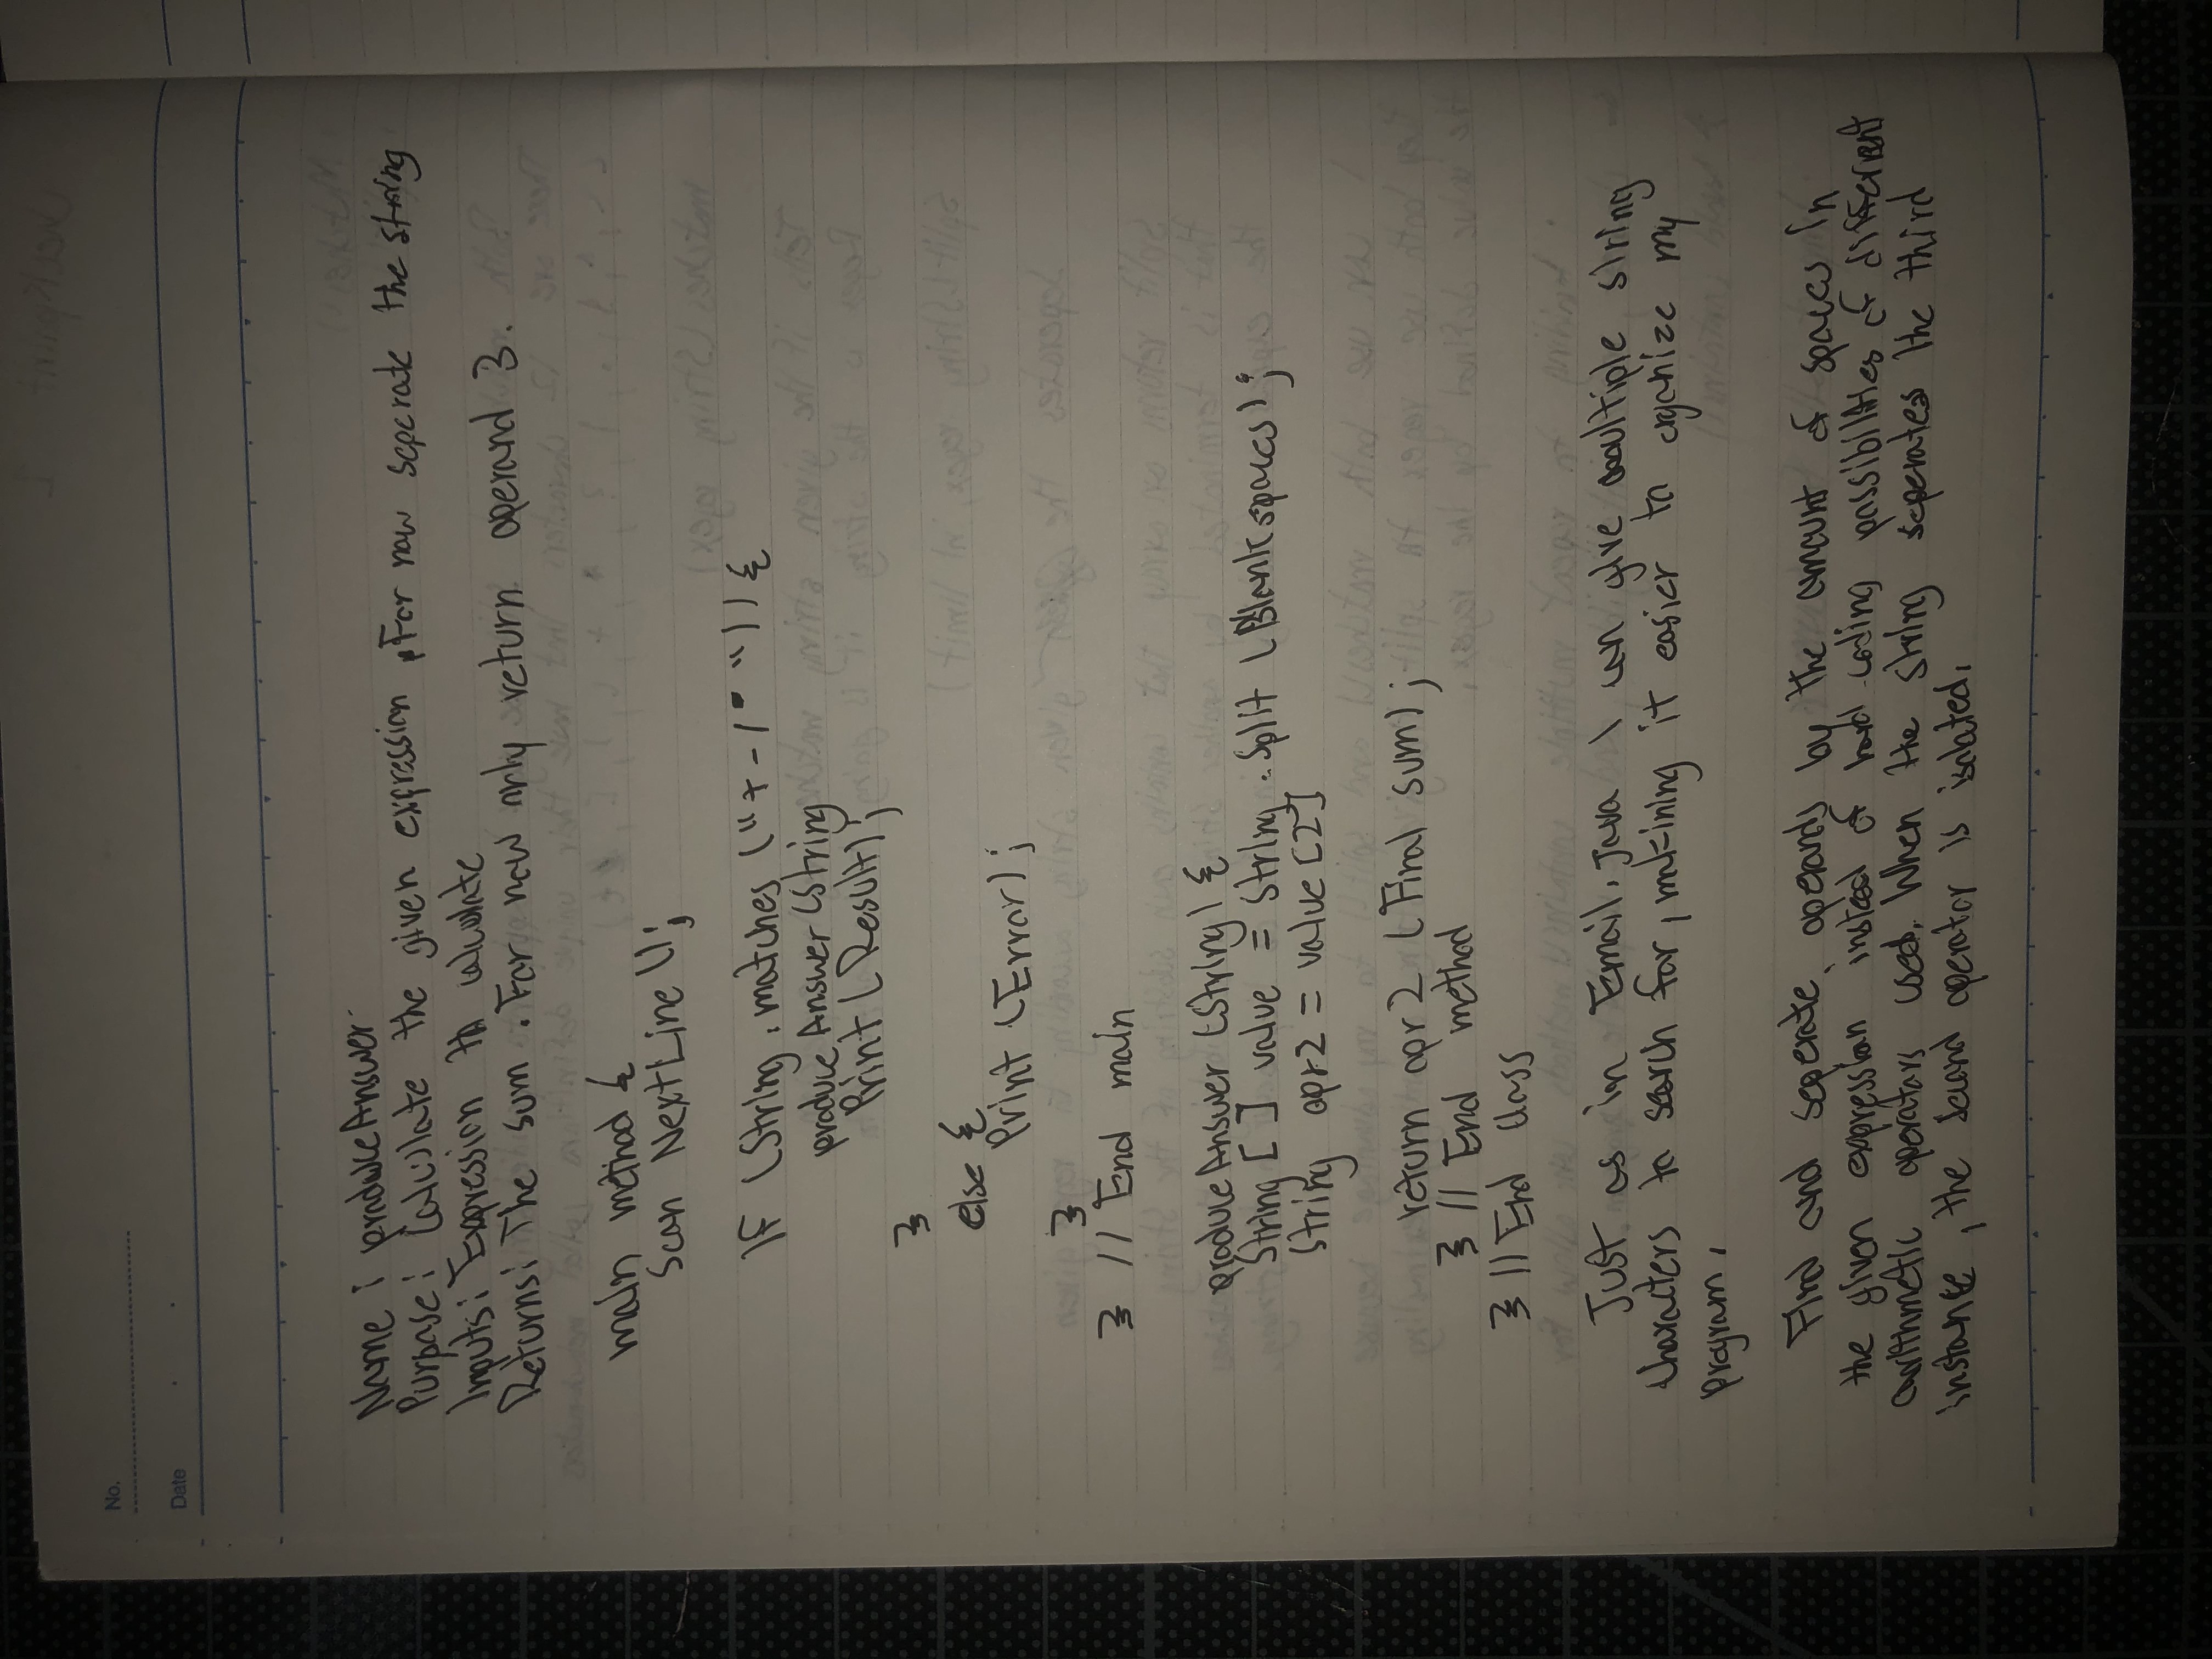 No.
Date
Name : produceAnswer
Purpose : Calculate the given expression . For now seperate the string
Inputs : Expression to calculate
Returns : The sum . For now only return operand 3.
main method {
Scan NextLine ();
If (String . matches ("+ - / * ")) {
produceAnswer (String
Print ( Result) ;
}
else {
Print (Error) ;
}
} // End main
produceAnswer (String) {
String [ ] value = String . Split ( Blank spaces) ;
String opr2 = value [2]
return opr 2 ( Final sum) ;
} // End method
} // End Class
Just as in Email. Java I can give multiple string
characters to search for, makining it easier to organize my
program .
Find and seperate operands by the amount of spaces in
the given expression instead of hard-coding possibilities of different
arithmetic operators used. When the string seperates the third
instance , the second operator is isolated.